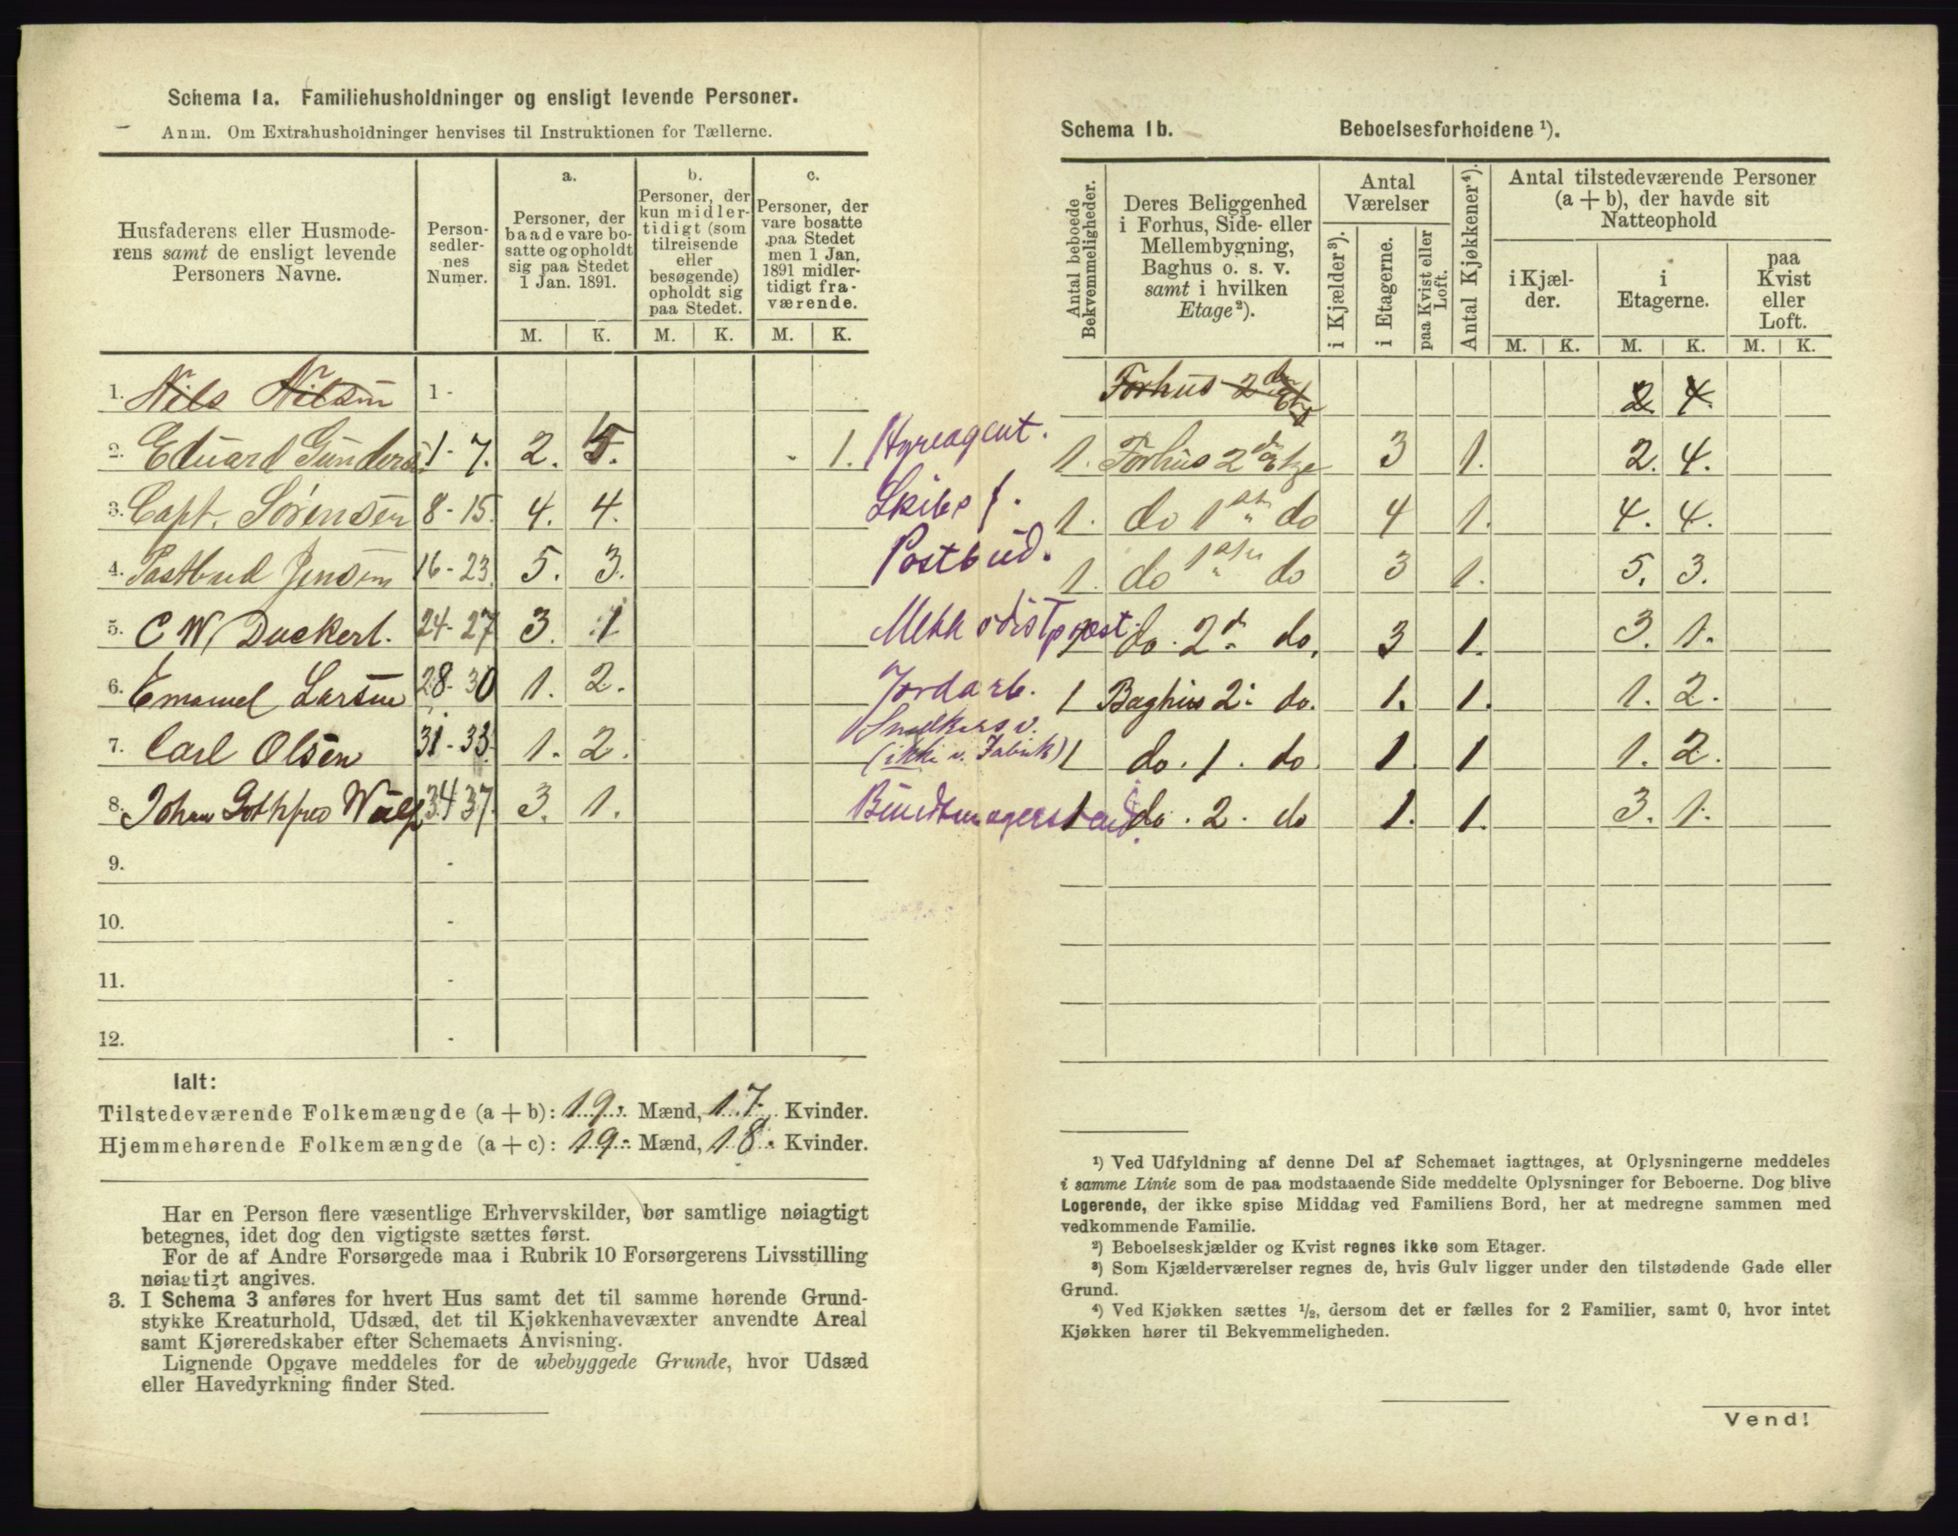 Schema 1a. Familiehusholdninger og ensligt levende Personer.
Anm. Om Extrahusholdninger henvises til Instruktionen for Tællerne.
Husfaderens eller Husmode-
rens samt de ensligt levende
Personers Navne.
Person-
sedler-
nes
Numer.
a.
Personer, der
baade vare bo-
satte og opholdt
sig paa Stedet
1 Jan. 1891.
b.
Personer, der
kun midler-
tidigt (som
tilreisende
eller
besøgende)
opholdt sig
paa Stedet.
c.
Personer, der
vare bosatte
paa Stedet
men 1 Jan.
1891 midler-
tidigt fra-
værende.
M. K. M. K. M. K.
1. Nils Nilsen 1 -
2. Eduard Gundersen 1 - 7. 2. 5. 1. Hyreagent.
3. Capt. Sørensen 8 - 15. 4. 4. Skibsf.
4. Postbud Jensen 16 - 23. 5. 3. Postbud.
5. C W Duckert. 24 - 27 3. 1 Methodistpræst.
6. Emanuel Larsen 28 - 30 1. 2. Jordarb.
7. Carl Olsen 31 - 33. 1. 2. Snedkersv.
(ikke v. Fabrik)
8. Johan Gothfred 34 37. 3. 1. Buntmagersvend.
9. -
10. -
11. -
12. -
Ialt:
Tilstedeværende Folkemængde (a + b): 19. Mænd, 17. Kvinder.
Hjemmehørende Folkemængde (a + c): 19. Mænd, 18. Kvinder.
Har en Person flere væsentlige Erhvervskilder, bør samtlige nøiagtigt
betegnes, idet dog den vigtigste sættes først.
For de af Andre Forsørgede maa i Rubrik 10 Forsørgerens Livsstilling
nøiagtigt angives.
3. I Schema 3 anføres for hvert Hus samt det til samme hørende Grund-
stykke Kreaturhold, Udsæd, det til Kjøkkenhavevæxter anvendte Areal
samt Kjøreredskaber efter Schemaets Anvisning.
Lignende Opgave meddeles for de ubebyggede Grunde, hvor Udsæd
eller Havedyrkning finder Sted.
Schema 1b. Beboelsesforholdene ¹).
Antal beboede
Bekvemmeligheder.
Deres Beliggenhed
i Forhus, Side- eller
Mellembygning,
Baghus o. s. v.
samt i hvilken
Etage²).
Antal
Værelser
i Kjælder³).
i Etagerne.
paa Kvist eller
Loft.
Antal Kjøkkener⁴).
Antal tilstedeværende Personer
(a + b), der havde sit
Natteophold
i Kjæl-
der.
i
Etagerne.
paa
Kvist
eller
Loft.
M. K. M. K. M. K.
Forhus 2 2 4.
1. Forhus 2 Etge 3 1. 2. 4.
1. do 1 do 4 1. 4. 4.
1. do 1 do 3 1. 5. 3.
1 do. 2 do. 3 1. 3. 1.
1 Baghus 2 do. 1. 1. 1. 2.
1 do. 1. do. 1. 1 1. 2.
1 do. 2. do 1. 1. 3. 1.
¹) Ved Udfyldning af denne Del af Schemaet iagttages, at Oplysningerne meddeles
i samme Linie som de paa modstaaende Side meddelte Oplysninger for Beboerne. Dog blive
Logerende, der ikke spise Middag ved Familiens Bord, her at medregne sammen med
vedkommende Familie.
²) Beboelseskjælder og Kvist regnes ikke som Etager.
³) Som Kjælderværelser regnes de, hvis Gulv ligger under den tilstødende Gade eller
Grund.
⁴) Ved Kjøkken sættes ½, dersom det er fælles for 2 Familier, samt 0, hvor intet
Kjøkken hører til Bekvemmeligheden.
Vend!